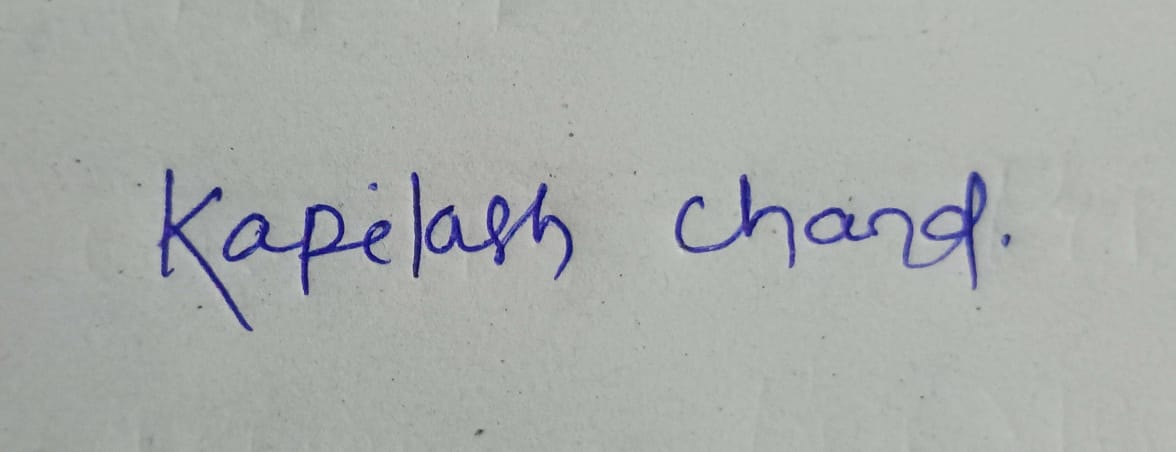 Kapilash Chand.